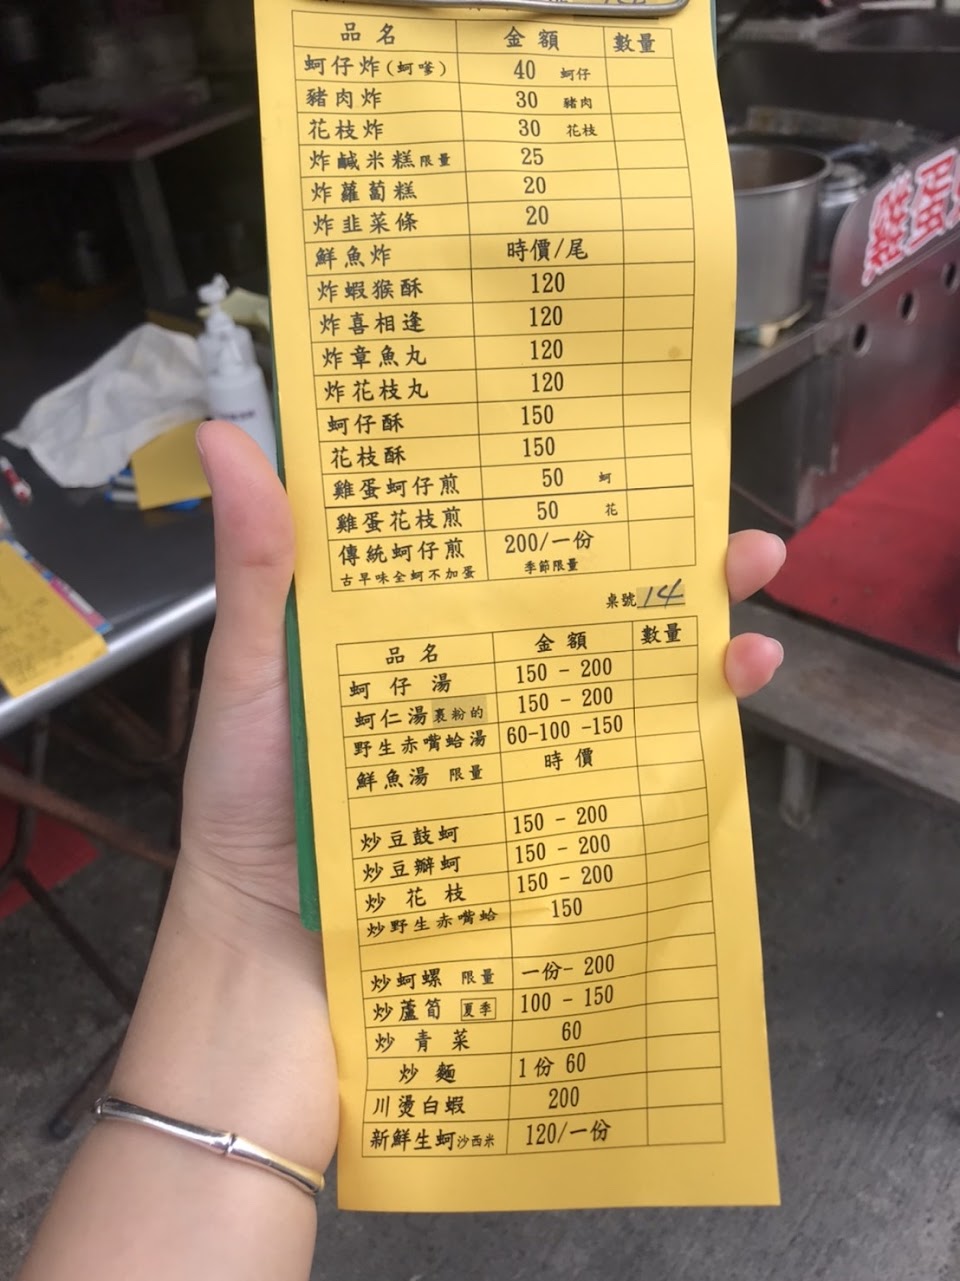 品名 金額 數量
蚵仔炸(蚵嗲) 40 蚵仔
豬肉炸 30 豬肉
花枝炸 30 花枝
炸鹹米糕限量 25
炸蘿蔔糕 20
炸韭菜條 20
鮮魚炸 時價/尾
炸蝦猴酥 120
炸喜相逢 120
炸章魚丸 120
炸花枝丸 120
蚵仔酥 150
花枝酥 150
雞蛋蚵仔煎 50 蚵
雞蛋花枝煎 50 花
傳統蚵仔煎 200/一份
古早味全蚵不加蛋 季節限量
桌號 14
品名 金額 數量
蚵仔湯 150-200
蚵仁湯裹粉的 150-200
野生赤嘴蛤湯 60-100-150
鮮魚湯 限量 時價
炒豆鼓蚵 150-200
炒豆瓣蚵 150-200
炒花枝 150-200
炒野生赤嘴蛤 150
炒蚵螺 限量 一份-200
炒蘆筍 夏季 100-150
炒青菜 60
炒麵 1份 60
川燙白蝦 200
新鮮生蚵沙西米 120/一份